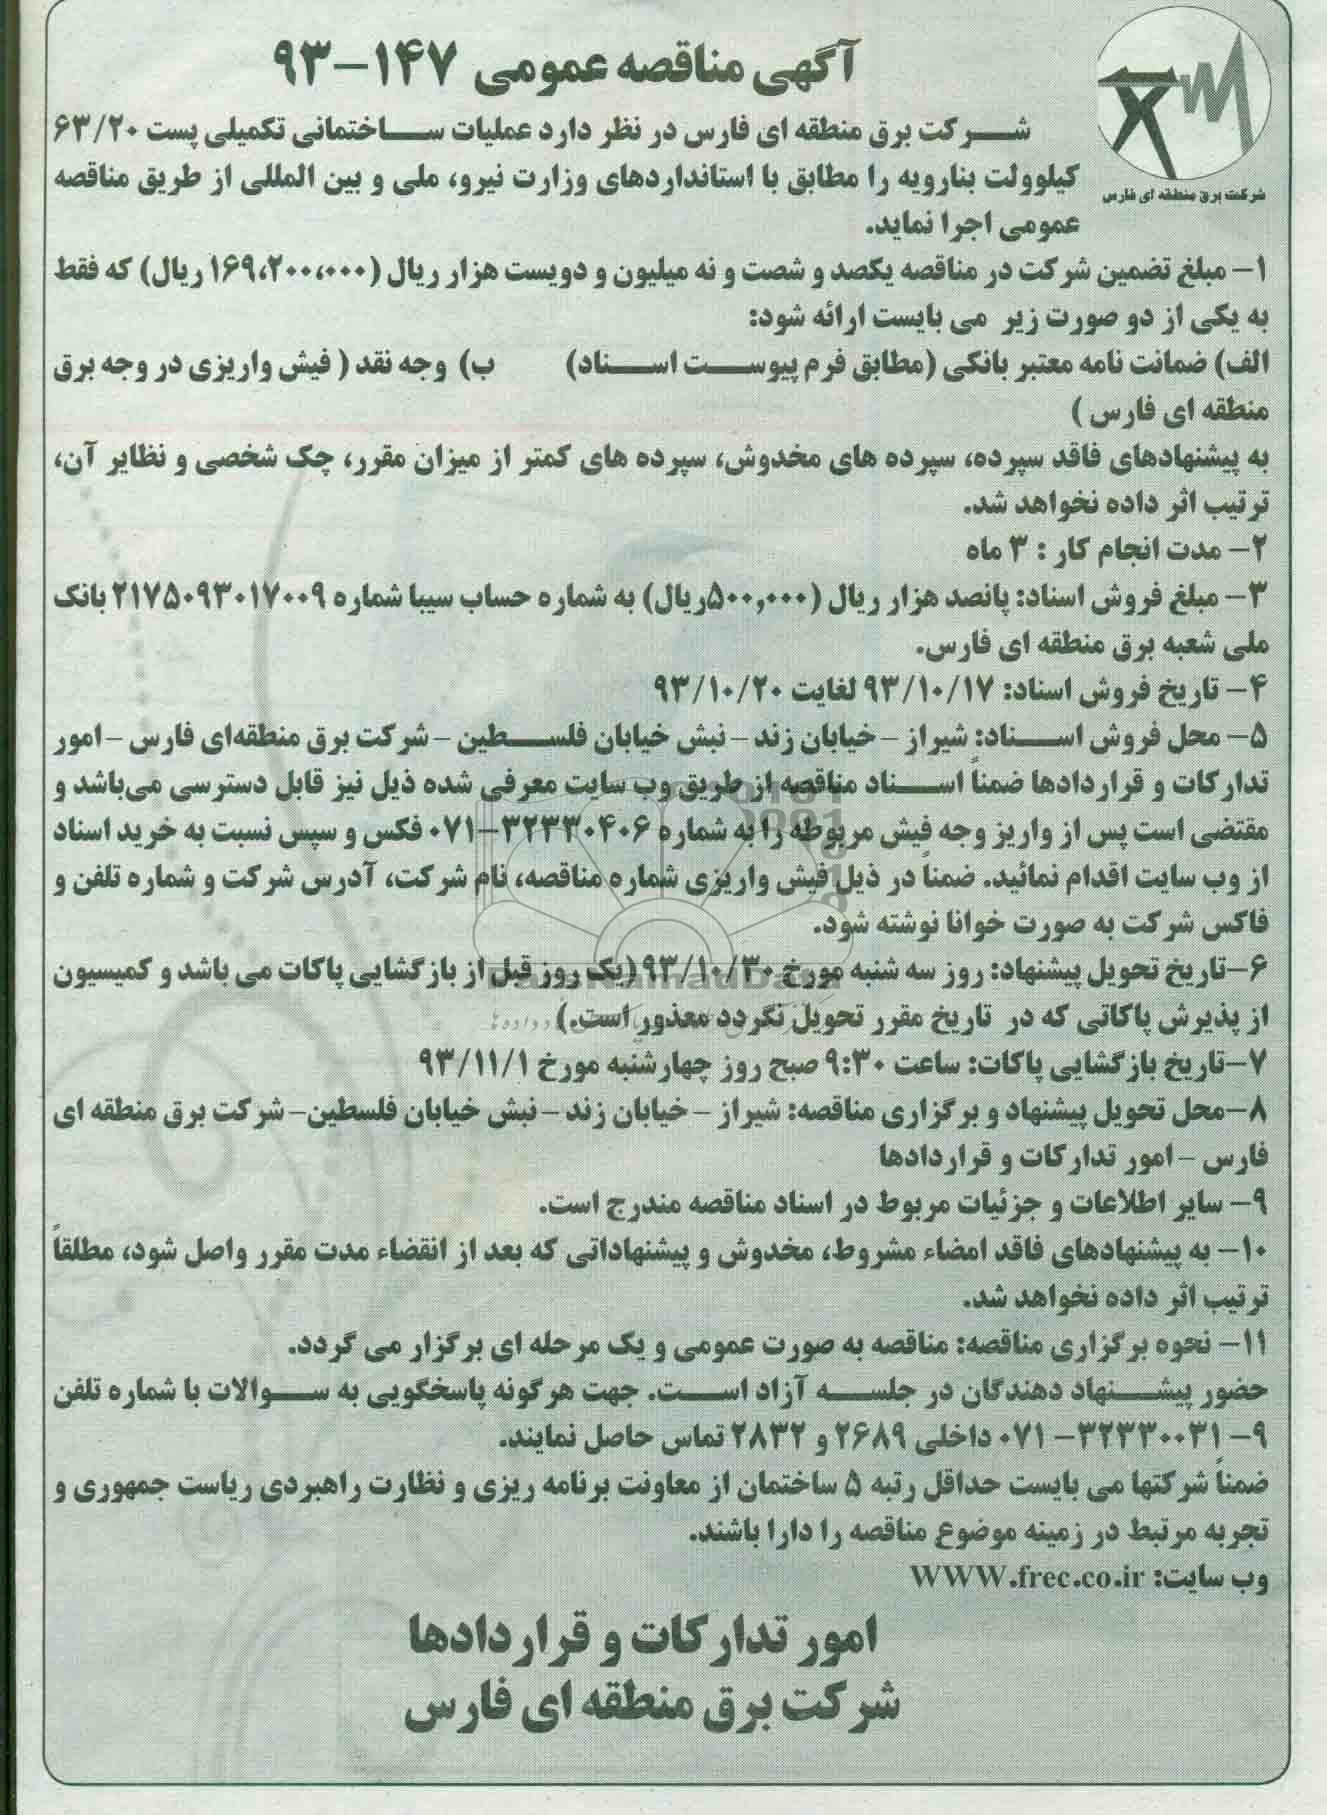 آگهی مناقصه عمومی ۱۴۷-۹۳
شرکت برق منطقه ای فارس
شرکت برق منطقه ای فارس در نظر دارد عملیات ساختمانی تکمیلی پست ۶۳/۲۰
کیلوولت بنارویه را مطابق با استانداردهای وزارت نیرو، ملی و بین المللی از طریق مناقصه
عمومی اجرا نماید.
۱- مبلغ تضمین شرکت در مناقصه یکصد و شصت و نه میلیون و دویست هزار ریال (۱۶۹،۲۰۰،۰۰۰ ریال) که فقط
به یکی از دو صورت زیر می بایست ارائه شود:
الف) ضمانت نامه معتبر بانکی (مطابق فرم پیوست اسناد) ب) وجه نقد ( فیش واریزی در وجه برق
منطقه ای فارس )
به پیشنهادهای فاقد سپرده، سپرده های مخدوش، سپرده های کمتر از میزان مقرر، چک شخصی و نظایر آن،
ترتیب اثر داده نخواهد شد.
۲- مدت انجام کار : ۳ ماه
۳- مبلغ فروش اسناد: پانصد هزار ریال (۵۰۰,۰۰۰ریال) به شماره حساب سیبا شماره ۲۱۷۵۰۹۳۰۱۷۰۰۹ بانک
ملی شعبه برق منطقه ای فارس.
۴- تاریخ فروش اسناد: ۹۳/۱۰/۱۷ لغایت ۹۳/۱۰/۲۰
۵- محل فروش اسناد: شیراز - خیابان زند - نبش خیابان فلسطین - شرکت برق منطقه‌ای فارس - امور
تدارکات و قراردادها ضمناً اسناد مناقصه از طریق وب سایت معرفی شده ذیل نیز قابل دسترسی می‌باشد و
مقتضی است پس از واریز وجه فیش مربوطه را به شماره ۳۲۳۳۰۴۰۶-۰۷۱ فکس و سپس نسبت به خرید اسناد
از وب سایت اقدام نمائید. ضمناً در ذیل فیش واریزی شماره مناقصه، نام شرکت، آدرس شرکت و شماره تلفن و
فاکس شرکت به صورت خوانا نوشته شود.
۶-تاریخ تحویل پیشنهاد: روز سه شنبه مورخ ۹۳/۱۰/۳۰ (یک روز قبل از بازگشایی پاکات می باشد و کمیسیون
از پذیرش پاکاتی که در تاریخ مقرر تحویل نگردد معذور است.)
۷-تاریخ بازگشایی پاکات: ساعت ۹:۳۰ صبح روز چهارشنبه مورخ ۹۳/۱۱/۱
۸-محل تحویل پیشنهاد و برگزاری مناقصه: شیراز - خیابان زند - نبش خیابان فلسطین- شرکت برق منطقه ای
فارس - امور تدارکات و قراردادها
۹- سایر اطلاعات و جزئیات مربوط در اسناد مناقصه مندرج است.
۱۰- به پیشنهادهای فاقد امضاء مشروط، مخدوش و پیشنهاداتی که بعد از انقضاء مدت مقرر واصل شود، مطلقاً
ترتیب اثر داده نخواهد شد.
۱۱- نحوه برگزاری مناقصه: مناقصه به صورت عمومی و یک مرحله ای برگزار می گردد.
حضور پیشنهاد دهندگان در جلسه آزاد است. جهت هرگونه پاسخگویی به سوالات با شماره تلفن
۹- ۳۲۳۳۰۰۳۱- ۰۷۱ داخلی ۲۶۸۹ و ۲۸۳۲ تماس حاصل نمایند.
ضمناً شرکتها می بایست حداقل رتبه ۵ ساختمان از معاونت برنامه ریزی و نظارت راهبردی ریاست جمهوری و
تجربه مرتبط در زمینه موضوع مناقصه را دارا باشند.
وب سایت: WWW.frec.co.ir
امور تدارکات و قراردادها
شرکت برق منطقه ای فارس